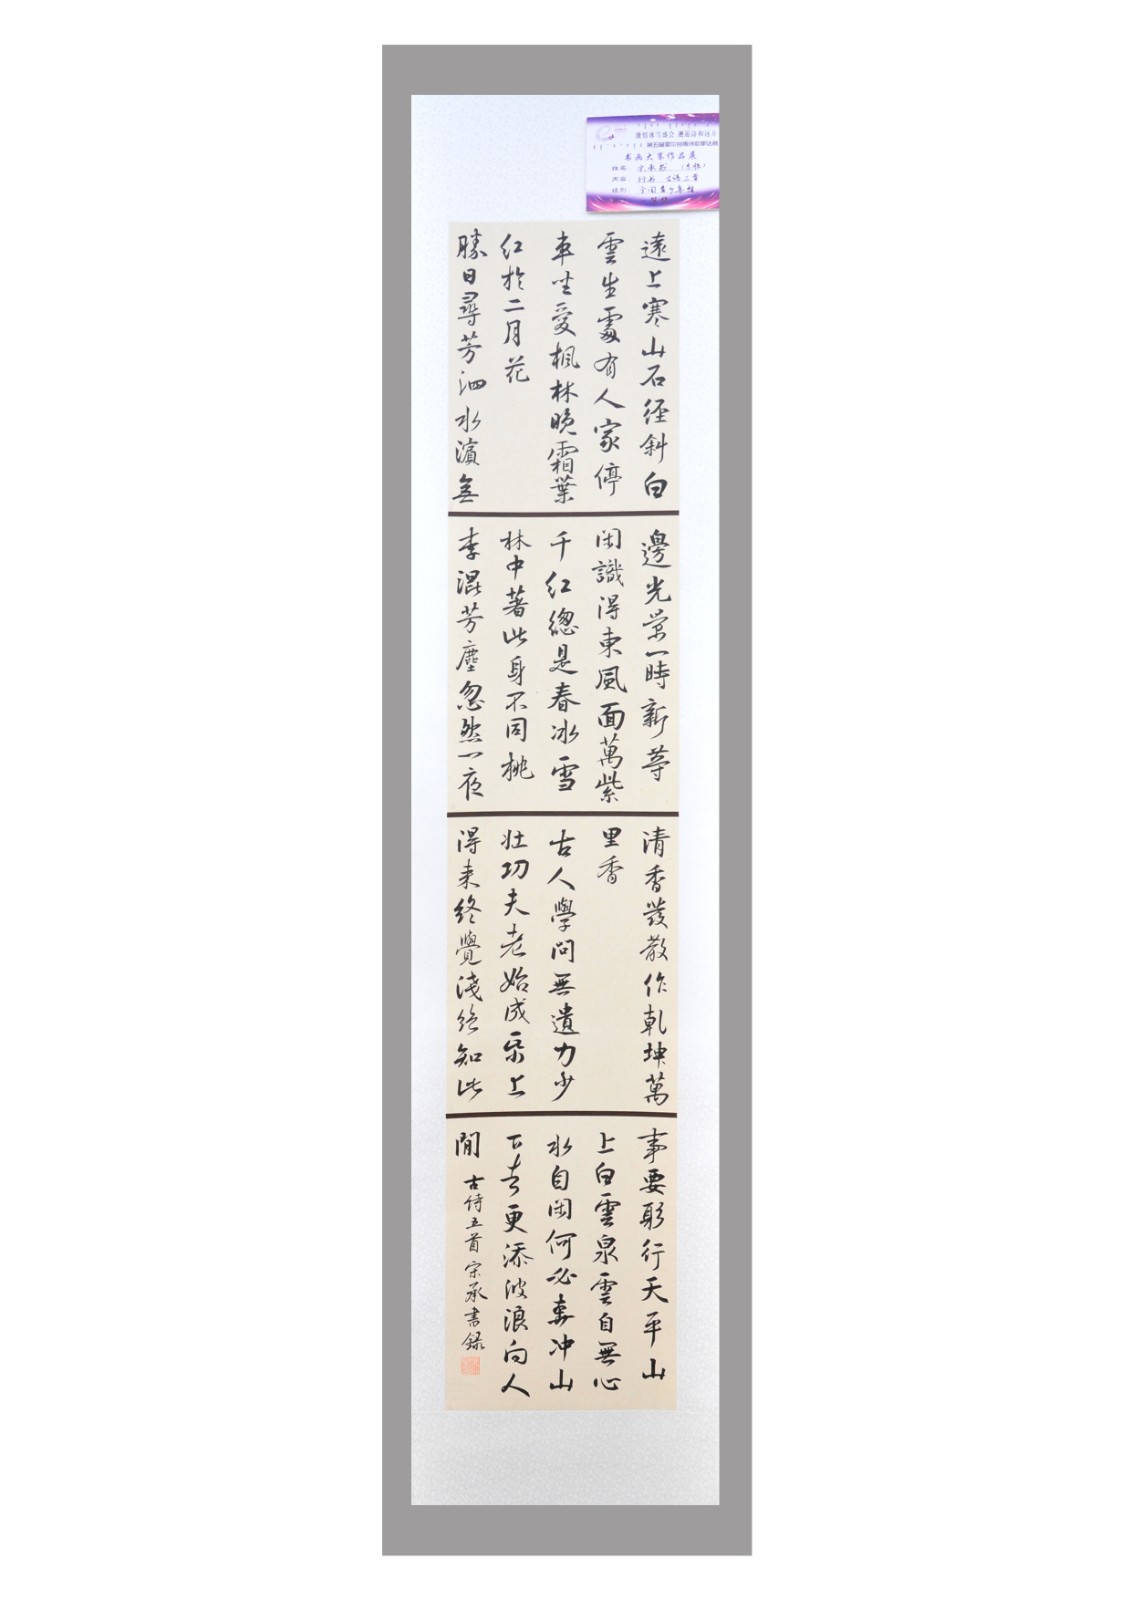 书画大赛作品展
姓名
内容 行书
组别 全国青少年组
遠上寒山石徑斜白
雲生處有人家停
車坐愛楓林晚霜葉
红於二月花
勝日尋芳泗水濱無
邊光景一時新等
閑識得東風面萬紫
千红總是春冰雪
林中著此身不同桃
李混芳塵忽然一夜
清香發散作乾坤萬
里香
古人學問無遺力少
壮功夫老始成紙上
得来終覺淺絶知此
事要躬行天平山
上白雲泉雲自無心
水自閑何必奔冲山
下去更添波浪向人
間 古诗五首 宋承書録